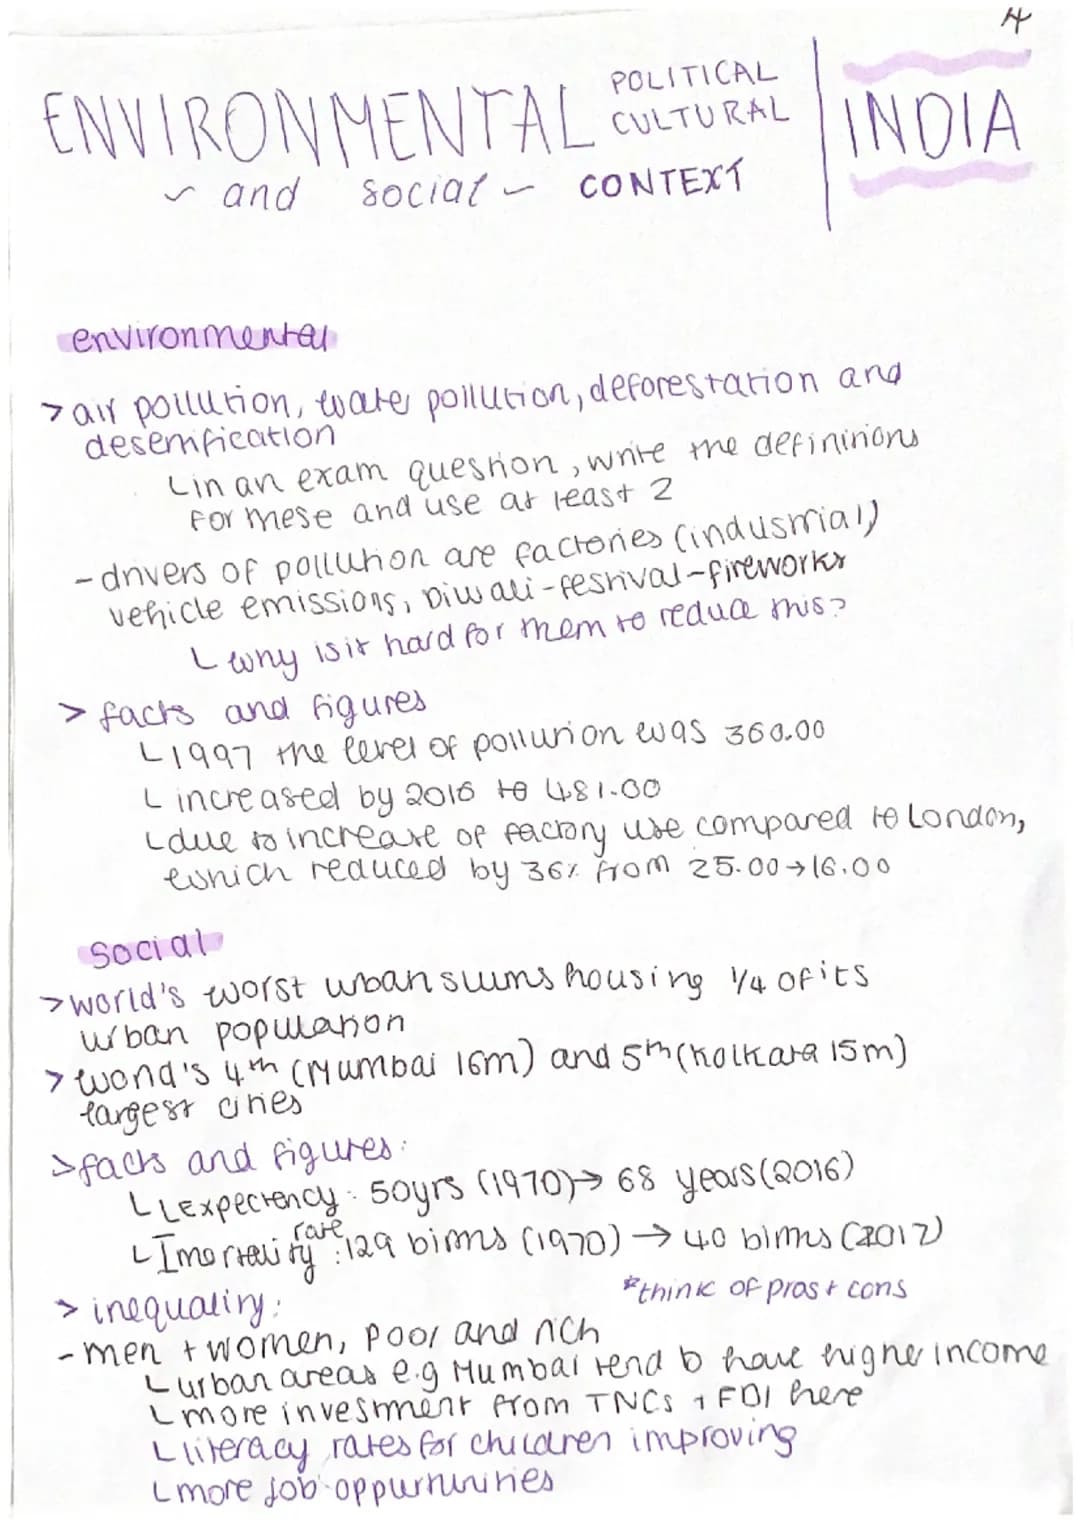 4
ENVIRONMENTAL POLITICAL CULTURAL
~ and social ~ CONTEXT
INDIA
environmental
> air pollution, water pollution, deforestation and
desertification
└ in an exam question, write the definitions
for these and use at least 2
- drivers of pollution are factories (industrial)
vehicle emissions, Diwali - festival - fireworks
└ why is it hard for them to reduce this?
> facts and figures
└ 1997 the level of pollution was 360.00
└ increased by 2016 to 481.00
└ due to increase of factory use compared to London,
which reduced by 36% from 25.00 → 16.00
social
> world's worst urban slums housing 1/4 of its
urban population
> world's 4th (Mumbai 16m) and 5th (Kolkata 15m)
largest cities
> facts and figures:
└ LExpectency: 50yrs (1970) → 68 years (2016)
└ Imortality rate: 129 births (1970) → 40 births (2017)
*think of pros + cons
> inequality:
- men + women, poor and rich
└ urban areas e.g Mumbai tend to have higher income
└ more investment from TNCs + FDI here
└ literacy rates for children improving
└ more job oppurtunities